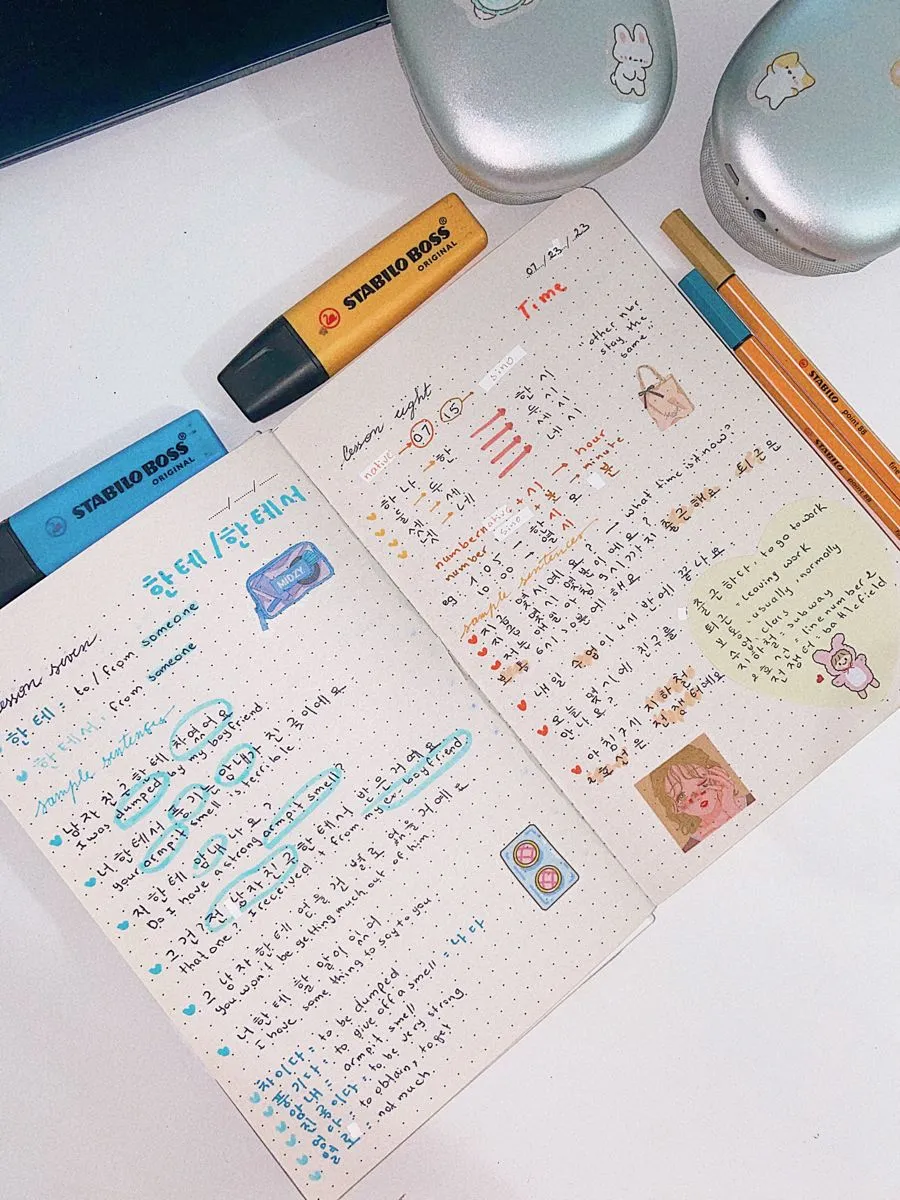 STABILO BOSS
ORIGINAL
STABILO BOSS
ORIGINAL
STABILO point 88 fine
STABILO point 88
__/__/__
한테/한테서
MIDZY
lesson seven
한테 : to / from someone
한테서 : from someone
sample sentences
남자 친구한테 차였어요
I was dumped by my boyfriend.
너한테서 풍기는 암내가 진국이에요
your armpit smell is terrible
저한테 암내나요?
Do I have a strong armpit smell?
그건? 전 남자친구한테서 받은거예요
that one? I received it from my ex boyfriend
그 남자한테 얻을건 별로 없을거에요
you won't be getting much out of him.
너한테 할 말이 있어
I have some thing to say to you.
차이다 : to be dumped
풍기다 : to give off a smell = 나다
암내 : armpit smell
진국이다 : to be very strong
얻다 : to obtain, to get
별로 : not much
01/23/23
Time
"other nbr
stay the
same"
lesson eight
native → 07 : 15 — sino
하나 → 한
둘 → 두
셋 → 세
넷 → 네
한 시
두 시
세 시
네 시
number native + 시 → hour
number sino + 분 → minute
eg 1:05 → 한시 오 분
10:00 → 열 시
sample sentences
지금 몇 시예요? — what time is it now?
지금 몇 시 몇 분이에요?
저는 매일 아침 9시까지 출근해요. 퇴근은
보통 6시 30분에 해요
내일 수업이 4시 반에 끝나요
오늘 몇 시에 친구를
만나요?
아침 7시 지하철
2호선은 전쟁터예요
출근하다 : to go to work
퇴근 : leaving work
보통 : usually, normally
수업 : class
지하철 : subway
2호선 : line number 2
전쟁터 : battlefield